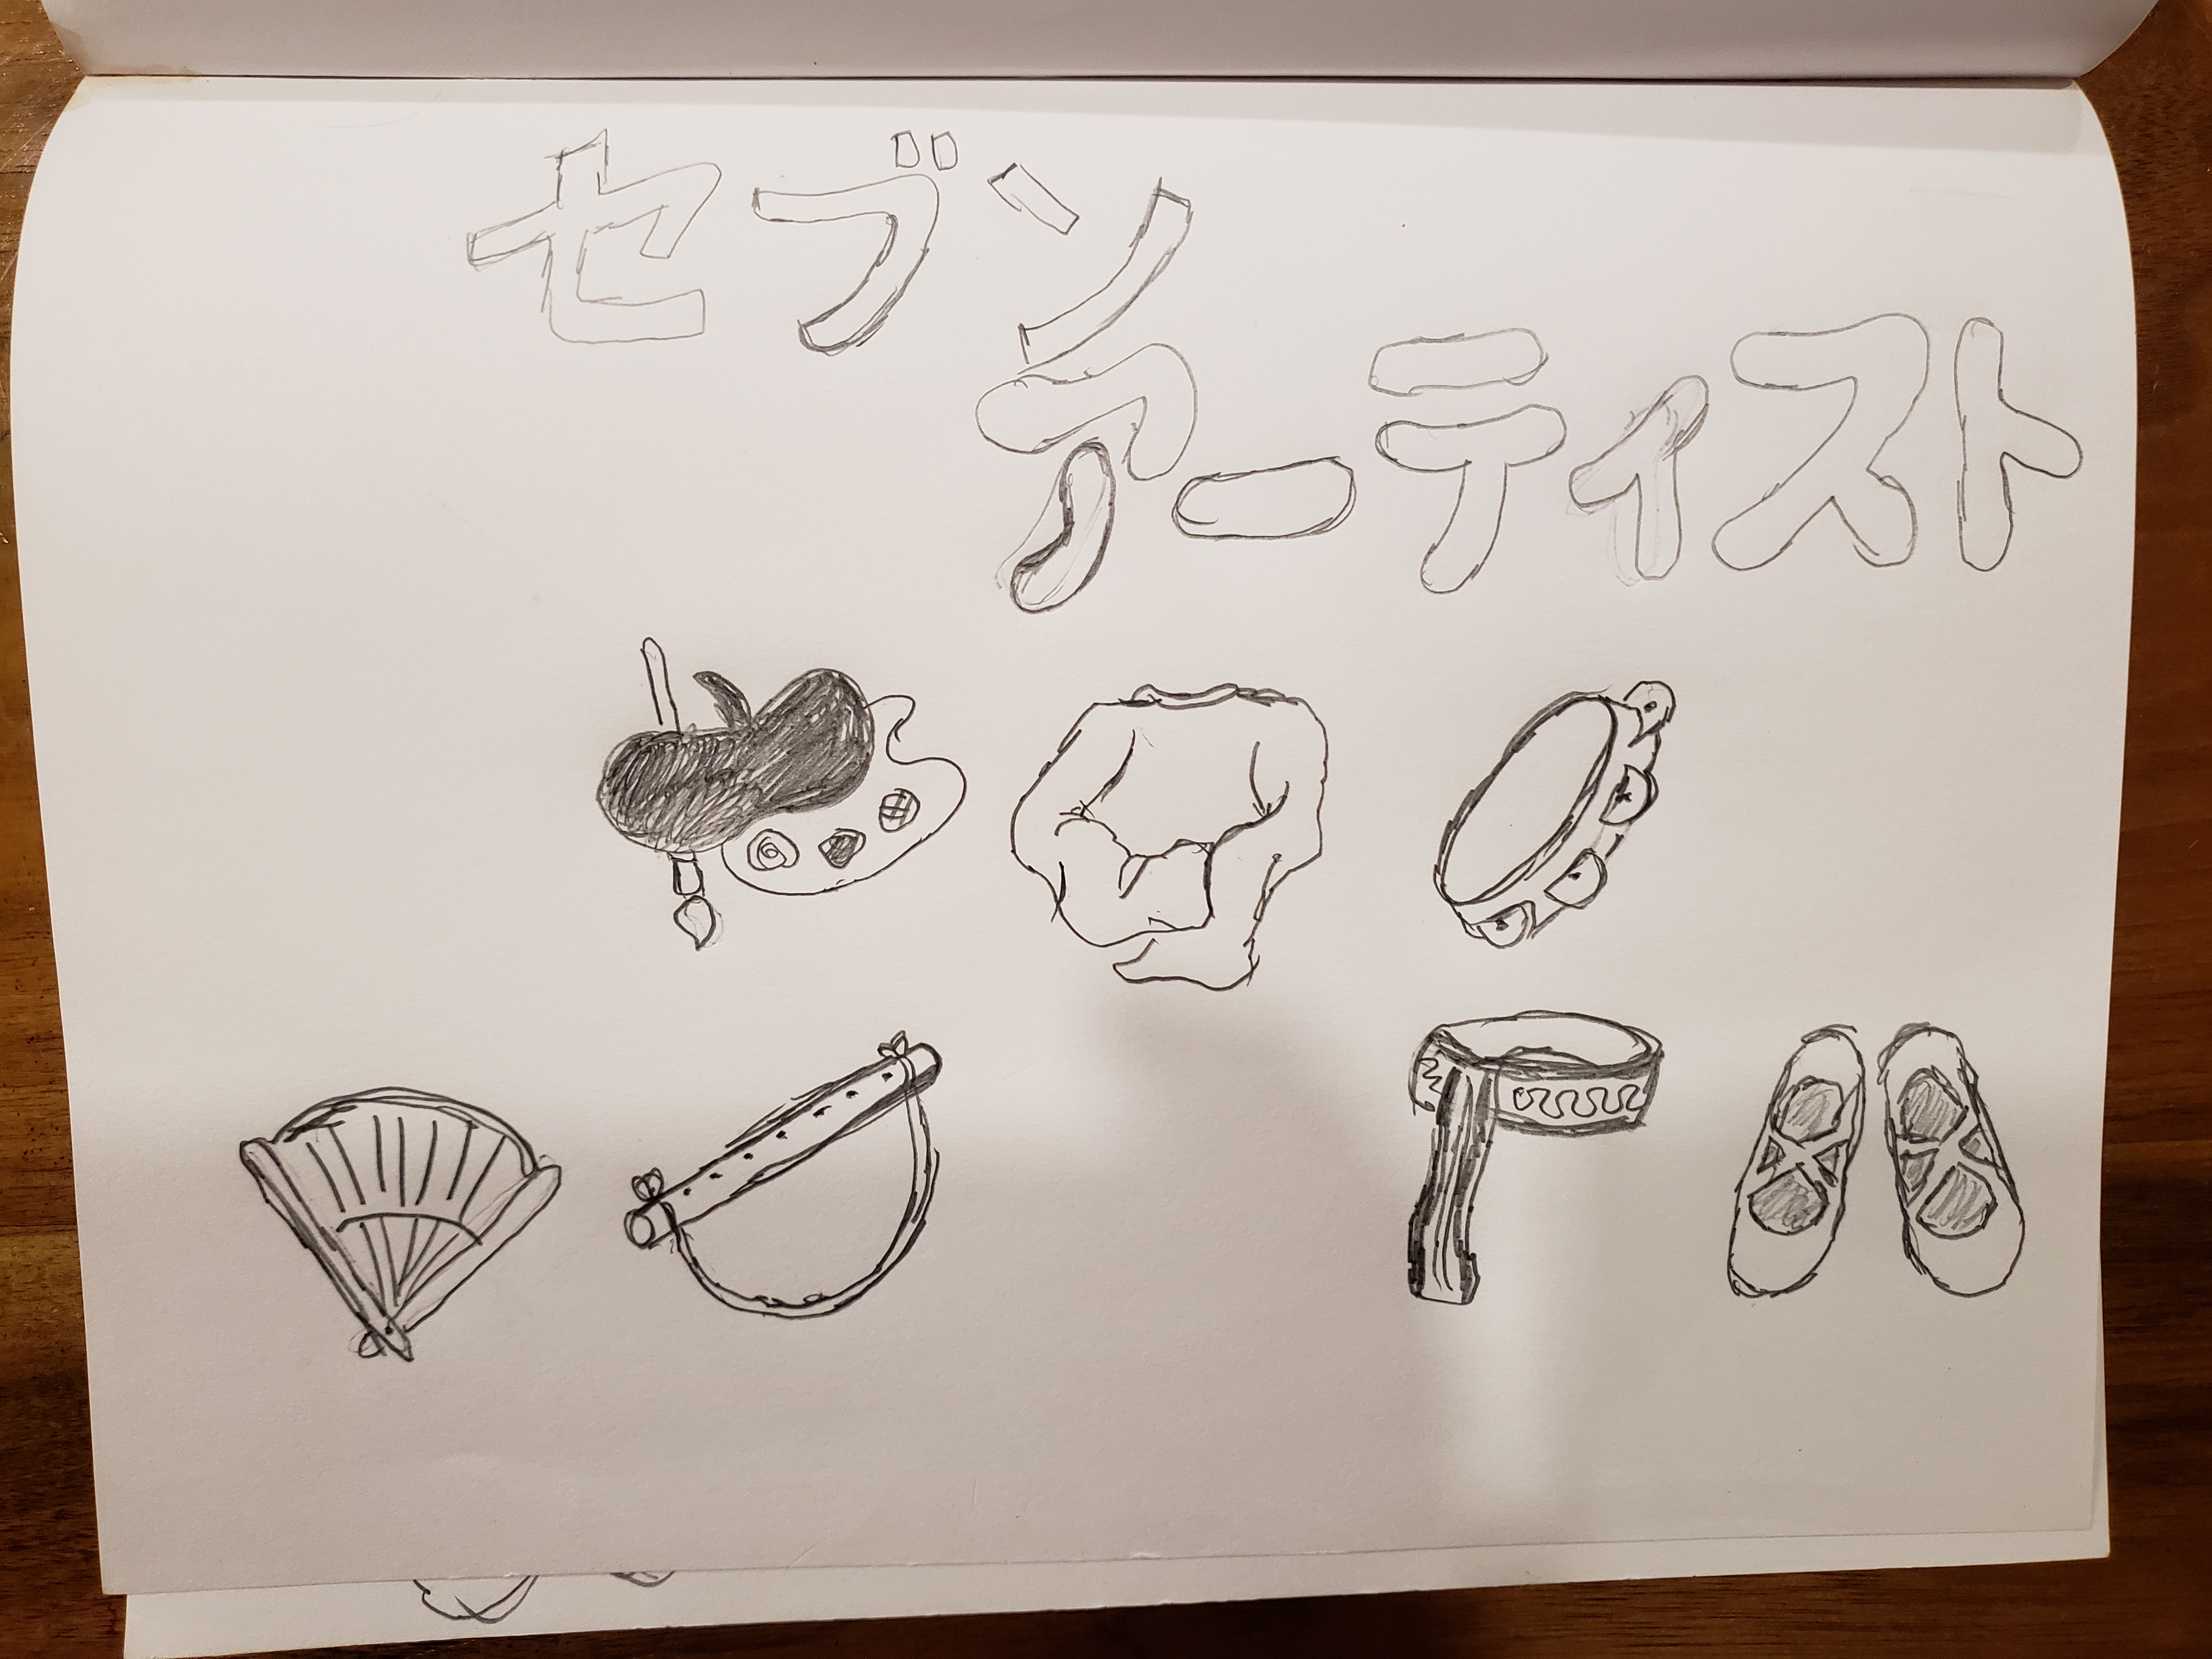 セブン
アーティスト